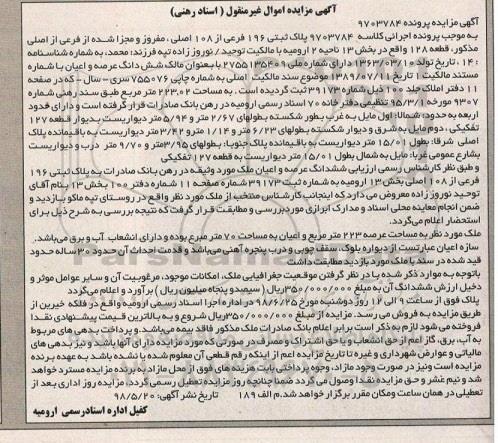 آگهی مزایده اموال غیرمنقول ( اسناد رهنی)
آگهی مزایده پرونده ۹۷۰۳۷۸۴
به موجب پرونده اجرائی کلاسه ۹۷۰۳۷۸۴ پلاک ثبتی ۱۹۶ فرعی از ۱۰۸ اصلی ، مفروز و مجزا شده از فرعی از اصلی
مذکور، قطعه ۱۲۸ واقع در بخش ۱۳ ناحیه ۲ ارومیه با مالکیت توحید / نوروز زاده تپه فرزند: محمد، به شماره شناسنامه
: ۱۴ ، تاریخ تولد: ۱۳۶۳/۰۳/۱۰ دارای شماره ملی ۲۷۵۵۱۳۵۴۰۹ با بعنوان مالک شش دانگ عرصه و اعیان با شماره
مستند مالکیت ۱ تاریخ ۱۳۸۹/۰۷/۱۱ موضوع سند مالکیت اصلی به شماره چاپی ۷۵۵۰۷۶ سری - سال - که در صفحه
۱۱ دفتر املاک جلد ۱۰۰ ذیل شماره ۳۹۱۷۳ ثبت گردیده است . به مساحت ۲۲۳,۰۲ متر مربع طبق سند رهنی شماره
۹۳۰۷ مورخه ۹۵/۳/۱ تنظیمی دفترخانه ۷۰ اسناد رسمی ارومیه در رهن بانک صادرات قرار گرفته است و دارای حدود
اربعه به حدود: شمالا: اول مایل به غرب بطور شکسته بطولهای ۲/۶۷ متر و ۵/۹۴ متر دیواریست بدیوار قطعه ۱۲۷
تفکیکی ، دوم مایل به شرق و دیوار شکسته بطولهای ۶/۲۳ متر و ۱/۱۴ متر و ۳/۴۲ متر دیواریست به باقیمانده پلاک
اصلی شرقا: بطول ۱۵/۰۱ متر دیواریست به باقیمانده پلاک جنوبا: بطولهای ۳/۹۵ متر و ۹/۷۰ متر درب و دیواریست
بشارع عمومی غربا: مایل به شمال بطول ۱۵/۰۱ متر دیواریست به قطعه ۱۲۷ تفکیکی
و طبق نظر کارشناس رسمی ارزیابی ششدانگ عرصه و اعیان ملک مورد وثیقه در رهن بانک صادرات به پلاک ثبتی ۱۹۶
فرعی از ۱۰۸ اصلی بخش ۱۳ ارومیه به شماره ثبت ۳۹۱۷۳ شماره صفحه ۱۱ شماره دفتر ۱۰۰ بخش ۱۳ بنام آقای
توحید نوروز زاده معروض می دارد که اینجانب کارشناس منتخب از ملک مورد نظر واقع در روستای تپه ماکو بازدید و
ضمن انجام معاینه محلی اسناد و مدارک ابرازی مورد بررسی و مطابقت قرار گرفت که نتیجه بررسی به شرح ذیل برای
استحضار اعلام می گردد.
ملک مورد نظر به مساحت عرصه ۲۲۳ متر مربع و اعیان به مساحت ۷۰ متر مبرع بوده و دارای انشعاب آب و برق می باشد.
سازه اعیان عبارتست از دیواره بلوک، سقف چوبی و درب پنجره آهنی می باشد و قدمت احداث بنا حدود ۳۰ ساله حدود
قید شده در سند با ملک مورد بازدید مطابقت داشت
باتوجه به موارد ذکر شده با در نظر گرفتن موقعیت جغرافیایی ملک، امکانات موجود، مرغوبیت آن و سایر عوامل موثر و
دخیل ارزش ششدانگ آن به مبلغ ۳۵۰/۰۰۰/۰۰۰ ریال ( سیصد و پنجاه میلیون ریال ) برآورد و اعلام می گردد
پلاک فوق از ساعت ۹ الی ۱۲ روز دوشنبه مورخ ۹۸/۶/۲۵ در اداره اجرا اسناد رسمی ارومیه واقع در فلکه خیرین از
طریق مزایده به فروش می رسد. مزایده از مبلغ ۳۵۰/۰۰۰/۰۰۰ ریال شروع و به بالاترین قیمت پیشنهادی نقدا
فروخته می شود لازم به ذکر است برابر اعلام بانک صادرات ملک مذکور فاقد بیمه می باشد. و پرداخت بدهی های مربوط
به آب، برق، گاز اعم از حق انشعاب و یا حق اشتراک و مصرف در صورتی که مورد مزایده دارای آنها باشد و نیز بدهی های
مالیاتی و عوارض شهرداری و غیره تا تاریخ مزایده اعم از اینکه رقم قطعی آن معلوم شده یا نشده باشد به عهده برنده
مزایده است ونیز در صورت وجود مازاد، وجوه پرداختی بابت هزینه های فوق از محل مازاد به برنده مزایده مسترد خواهد
شد و نیم عشر و حق مزایده نقدا وصول می گردد ضمنا چنانچه روز مزایده تعطیل رسمی گردد، مزایده روز اداری بعد از
تعطیلی در همان ساعت ومکان مقرر برگزار خواهد شد.م الف ۱۸۹ تاریخ نشر آگهی: ۹۸/۵/۲۰
کفیل اداره اسنادرسمی ارومیه